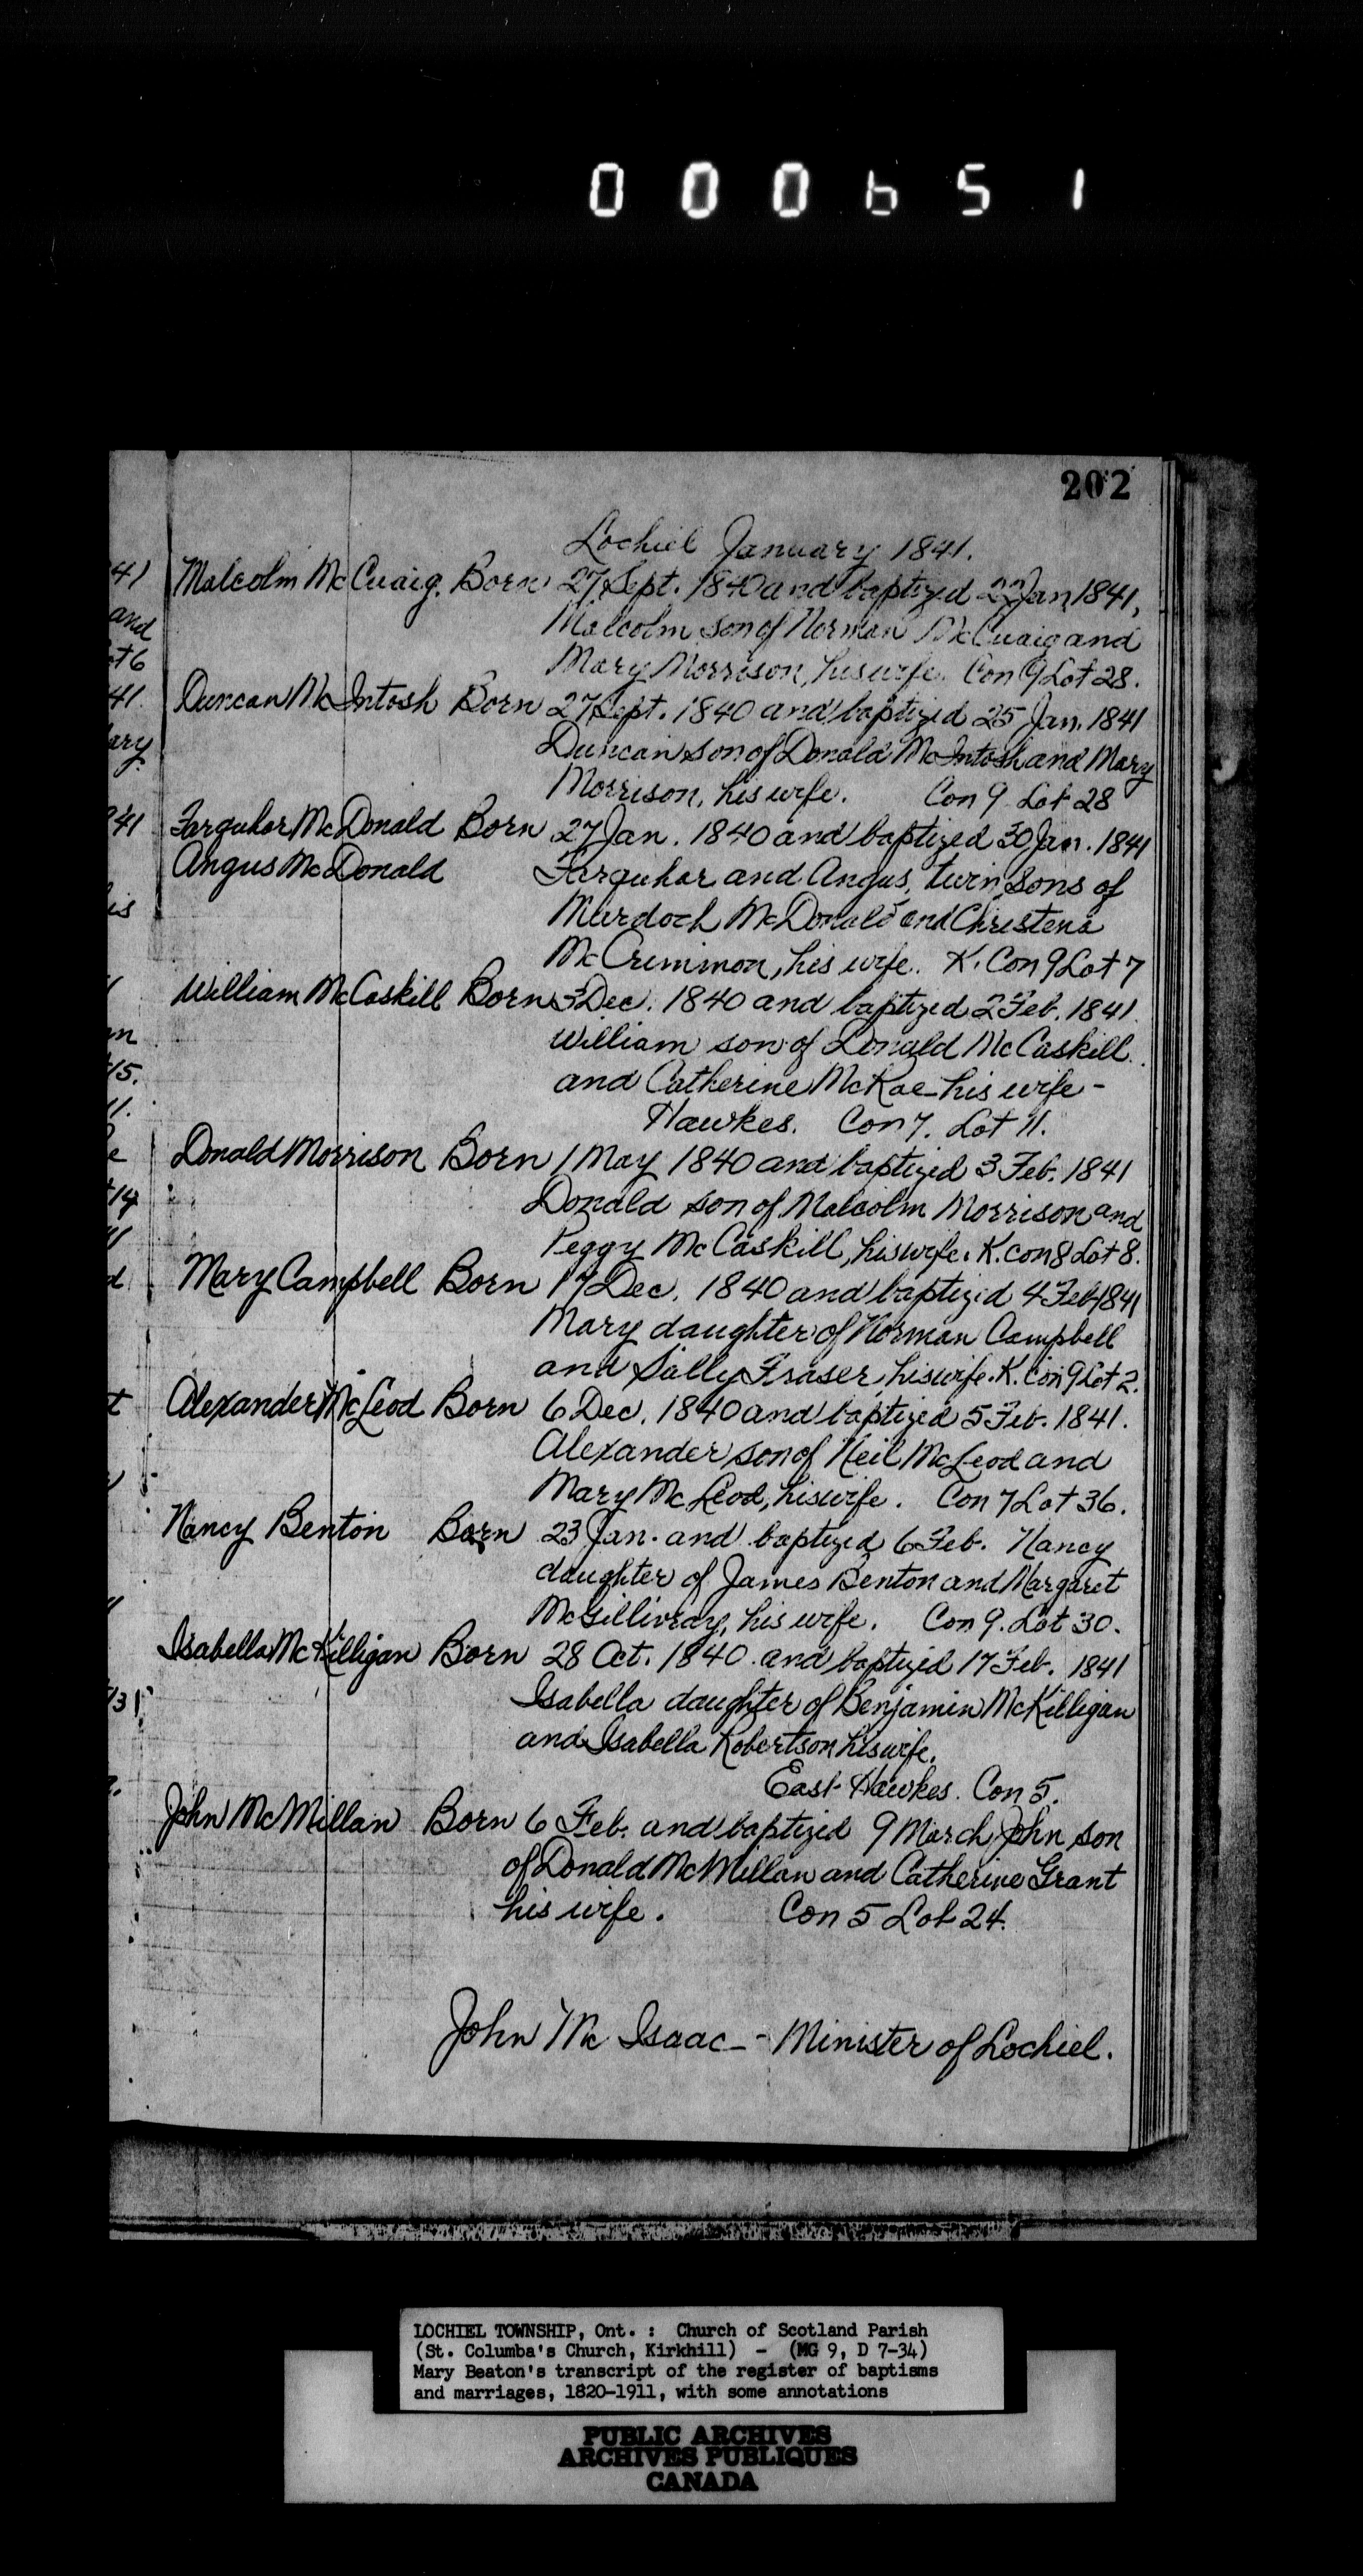 000651
202
Lochiel January 1841.
Malcolm McCuaig. Born 27 Sept. 1840 and baptized 22 Jan 1841,
Malcolm son of Norman McCuaig and
Mary Morrison, his wife. Con 9 Lot 28.
Duncan McIntosh Born 27 Sept. 1840 and baptized 25 Jan. 1841
Duncan son of Donald McIntosh and Mary
Morrison, his wife. Con 9 Lot 28
Farquhar McDonald Born 27 Jan. 1840 and baptized 30 Jan. 1841
Angus McDonald Farquhar and Angus, twin sons of
Murdoch McDonald and Christena
McCrimmon, his wife. K. Con 9 Lot 7
William McCaskill Born 3 Dec. 1840 and baptized 2 Feb. 1841.
William son of Donald McCaskill
and Catherine McRae his wife -
Hawkes. Con 7. Lot 11.
Donald Morrison Born 1 May 1840 and baptized 3 Feb. 1841
Donald son of Malcolm Morrison and
Peggy McCaskill, his wife. K. con 8 Lot 8.
Mary Campbell Born 17 Dec. 1840 and baptized 4 Feb 1841
Mary daughter of Norman Campbell
and Sally Fraser, his wife. K. Con 9 Lot 2.
Alexander McLeod Born 6 Dec. 1840 and baptized 5 Feb. 1841.
Alexander son of Neil McLeod and
Mary McLeod, his wife. Con 7 Lot 36.
Nancy Benton Born 23 Jan. and baptized 6 Feb. Nancy
daughter of James Benton and Margaret
McGillivray, his wife. Con 9. Lot 30.
Isabella McKilligan Born 28 Oct. 1840 and baptized 17 Feb. 1841
Isabella daughter of Benjamin McKilligan
and Isabella Robertson his wife.
East Hawkes. Con 5.
John McMillan Born 6 Feb. and baptized 9 March John son
of Donald McMillan and Catherine Grant
his wife. Con 5 Lot 24.
John Mc Isaac - Minister of Lochiel.
LOCHIEL TOWNSHIP, Ont. : Church of Scotland Parish
(St. Columba's Church, Kirkhill) - (MG 9, D 7-34)
Mary Beaton's transcript of the register of baptisms
and marriages, 1820-1911, with some annotations
PUBLIC ARCHIVES
ARCHIVES PUBLIQUES
CANADA